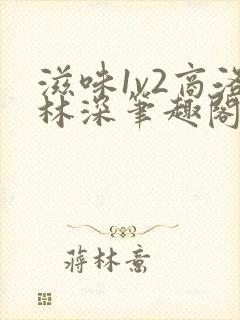 滋味1v2高洛
林深笔趣阁
蒋林熹